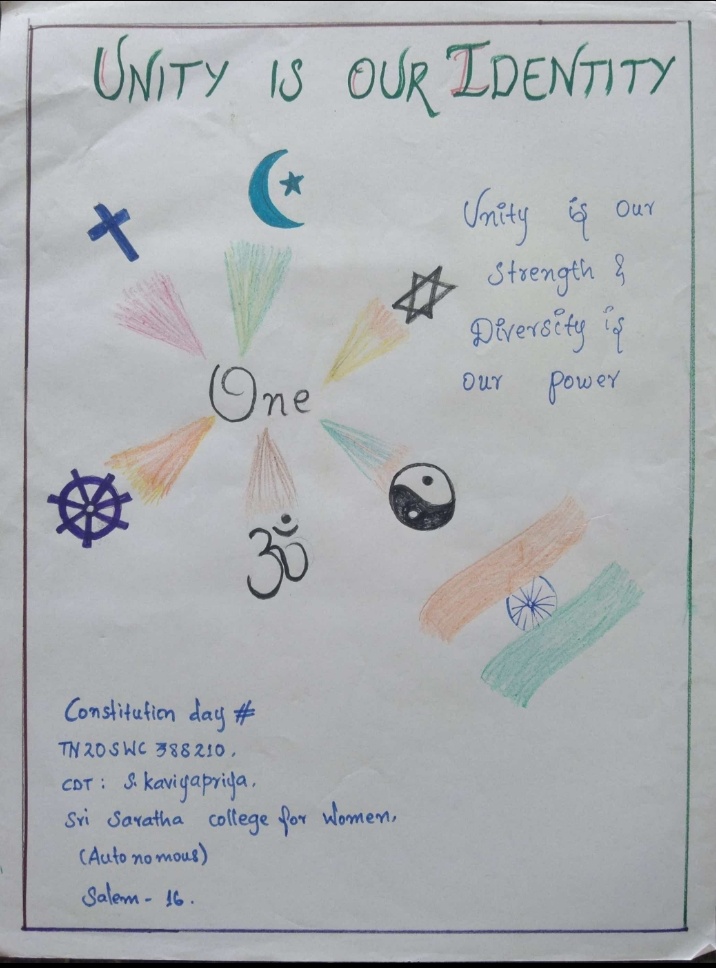 UNITY IS OUR IDENTITY
Unity is our
Strength &
Diversity is
our power
One
ॐ
Constitution day #
TN20SWC 388210.
CDT : S. kaviyapriya.
Sri Saratha college for Women,
(Autonomous)
Salem - 16.